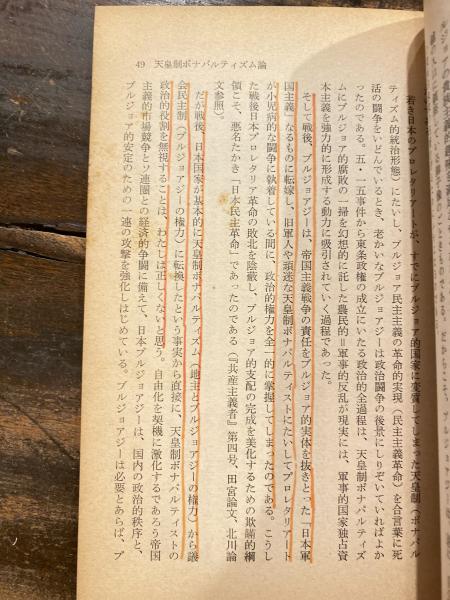 49 天皇制ボナパルティズム論
若き日本のプロレタリアートが、すでにブルジョア的国家に変質してしまった天皇制(ボナパル
ティズム的統治形態)にたいし、ブルジョア民主主義の革命的実現(民主主義革命)を合言葉に死
活の闘争をいどんでいるとき、老かいなブルジョアジーは政治闘争の後景にしりぞいていればよか
ったのである。五・一五事件から東条政権の成立にいたる政治的全過程は、天皇制ボナパルティズ
ムにブルジョア的腐敗の一掃を幻想的に託した農民的=軍事的反乱が現実には、軍事的国家独占資
本主義を強力的に形成する動力に吸引されていく過程であった。
そして戦後、ブルジョアジーは、帝国主義戦争の責任をブルジョア的実体を抜きとった「日本軍
国主義」なるものに転嫁し、旧軍人や頑迷な天皇制ボナパルティストにたいしてプロレタリアート
が小児病的な闘争に執着している間に、政治的権力を全一的に掌握してしまったのである。こうし
た戦後日本プロレタリア革命の敗北を陰蔽し、ブルジョア的支配の完成を美化するための欺瞞的綱
領こそ、悪名たかき「日本民主革命」であったのである(『共産主義者』第四号、田宮論文、北川論
文参照)。
だが戦後、日本国家が基本的に天皇制ボナパルティズム(地主とブルジョアジーの権力)から議
会民主制(ブルジョアジーの権力)に転換したという事実から直接に、天皇制ボナパルティストの
政治的役割を無視することは、わたしは正しくないと思う。自由化を契機に激化するであろう帝国
主義的市場競争とソ連圏との経済的争闘に備えて、日本ブルジョアジーは、国内の政治的秩序と、
ブルジョア的安定のための一連の攻撃を強化しはじめている。ブルジョアジーは必要とあらば、プ